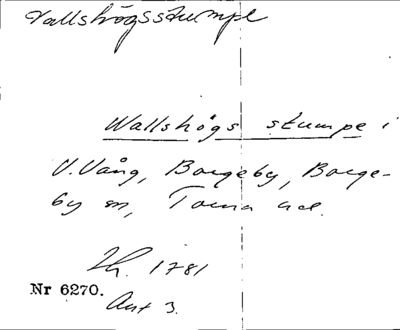 Vallshögsstumpe
Wallshögs stumpe i
V. Vång, Borgeby, Borge-
by sn, Torna hd.
Lh. 1781
Nr 6270.
Ant 3.